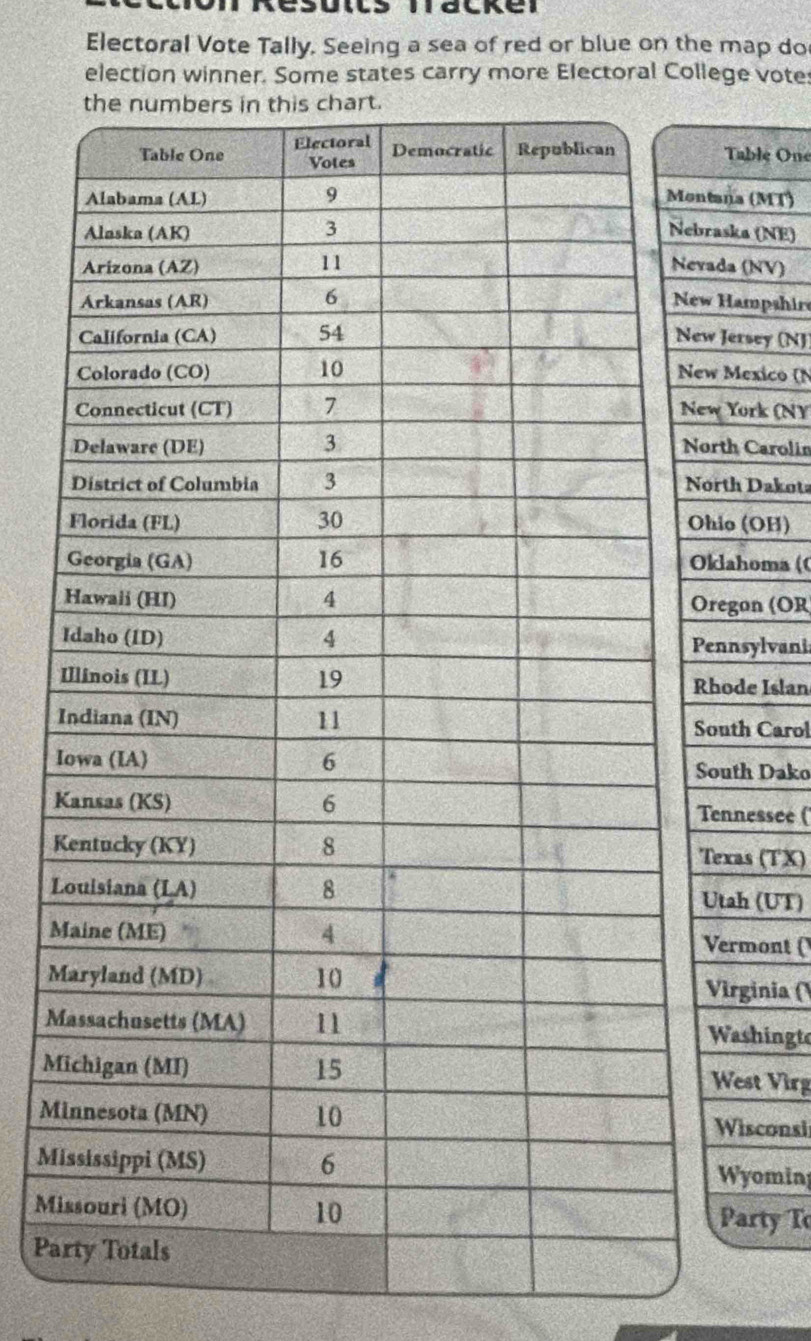 Election Results Tracker
Electoral Vote Tally. Seeing a sea of red or blue on the map
election winner. Some states carry more Electoral College
the numbers in this chart.
Table One Electoral Votes Democratic Republican
Alabama (AL) 9
Alaska (AK) 3
Arizona (AZ) 11
Arkansas (AR) 6
California (CA) 54
Colorado (CO) 10
Connecticut (CT) 7
Delaware (DE) 3
District of Columbia 3
Florida (FL) 30
Georgia (GA) 16
Hawaii (HI) 4
Idaho (ID) 4
Illinois (IL) 19
Indiana (IN) 11
Iowa (IA) 6
Kansas (KS) 6
Kentucky (KY) 8
Louisiana (LA) 8
Maine (ME) 4
Maryland (MD) 10
Massachusetts (MA) 11
Michigan (MI) 15
Minnesota (MN) 10
Mississippi (MS) 6
Missouri (MO) 10
Party Totals
Table One
Montana (MT)
Nebraska (NE)
Nevada (NV)
New Hampshire
New Jersey (NJ)
New Mexico
New York (NY
North
North Dakota
Ohio (OH)
Oklahoma
Oregon (OR
South
South
Tennessee
Texas (TX)
Utah (UT)
Vermont
Virginia
West
Party